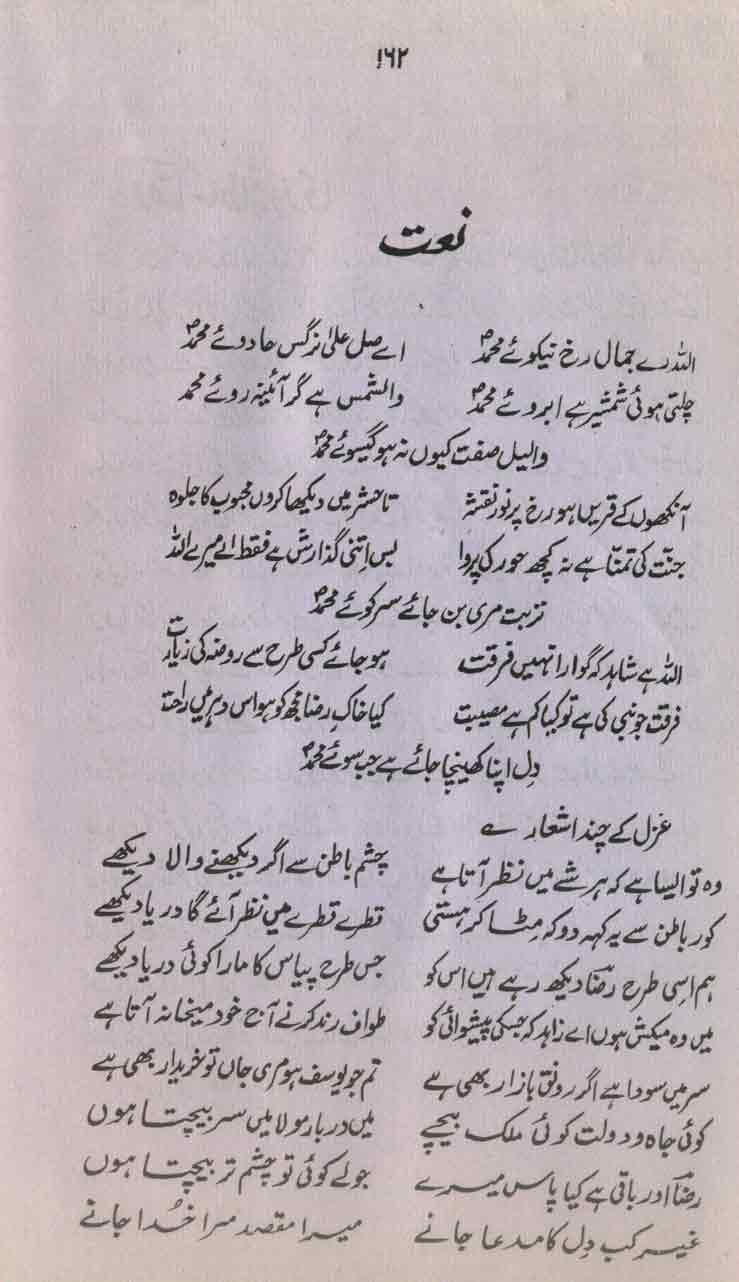 ۱۶۲
نعت
اللہ رے جمال رخ نیکوئے محمدؐ اے صل علیٰ نرگس جادوئے محمدؐ
چلتی ہوئی شمشیر ہے ابروئے محمدؐ والشمس ہے گر آئینہ روئے محمد
والیل صفت کیوں نہ ہو گیسوئے محمدؐ
آنکھوں کے قریں ہو رخ پر نور نقشہ تا حشر میں دیکھا کروں محبوب کا جلوہ
جنّت کی تمنّا ہے نہ کچھ حور کی پروا بس اتنی گذارش ہے فقط اے میرے اللہ
تربت مری بن جائے سر کوئے محمدؐ
اللہ ہے شاہد کہ گوارا نہیں فرقت ہو جائے کسی طرح سے روضہ کی زیارت
فرقت جو نبی کی ہے تو کیا کم ہے مصیبت کیا خاک رضا مجھ کو ہو اس دہر میں راحت
دِل اپنا کھینچا جائے ہے جب سوئے محمدؐ
غزل کے چند اشعار ؎
وہ تو ایسا ہے کہ ہر شے میں نظر آتا ہے چشم باطن سے اگر دیکھنے والا دیکھے
کور باطن سے یہ کہہ دو کہ مِٹا کر ہستی قطرے قطرے میں نظر آئے گا دریا دیکھے
ہم اسی طرح رضاؔ دیکھ رہے ہیں اس کو جس طرح پیاس کا مارا کوئی دریا دیکھے
میں وہ میکش ہوں اے زاہد کہ جسکی پیشوائی کو طواف رند کرنے آج خود میخانہ آتا ہے
سر میں سودا ہے اگر رونق بازار بھی ہے تم جو یوسف ہو مری جاں تو خریدار بھی ہے
کوئی جاہ و دولت کوئی ملک بیچے میں دربار مولا میں سر بیچتا ہوں
رضاؔ اور باقی ہے کیا پاس میرے جو لے کوئی تو چشم تر بیچتا ہوں
غیر کب دِل کا مدعا جانے میرا مقصد مرا خُدا جانے